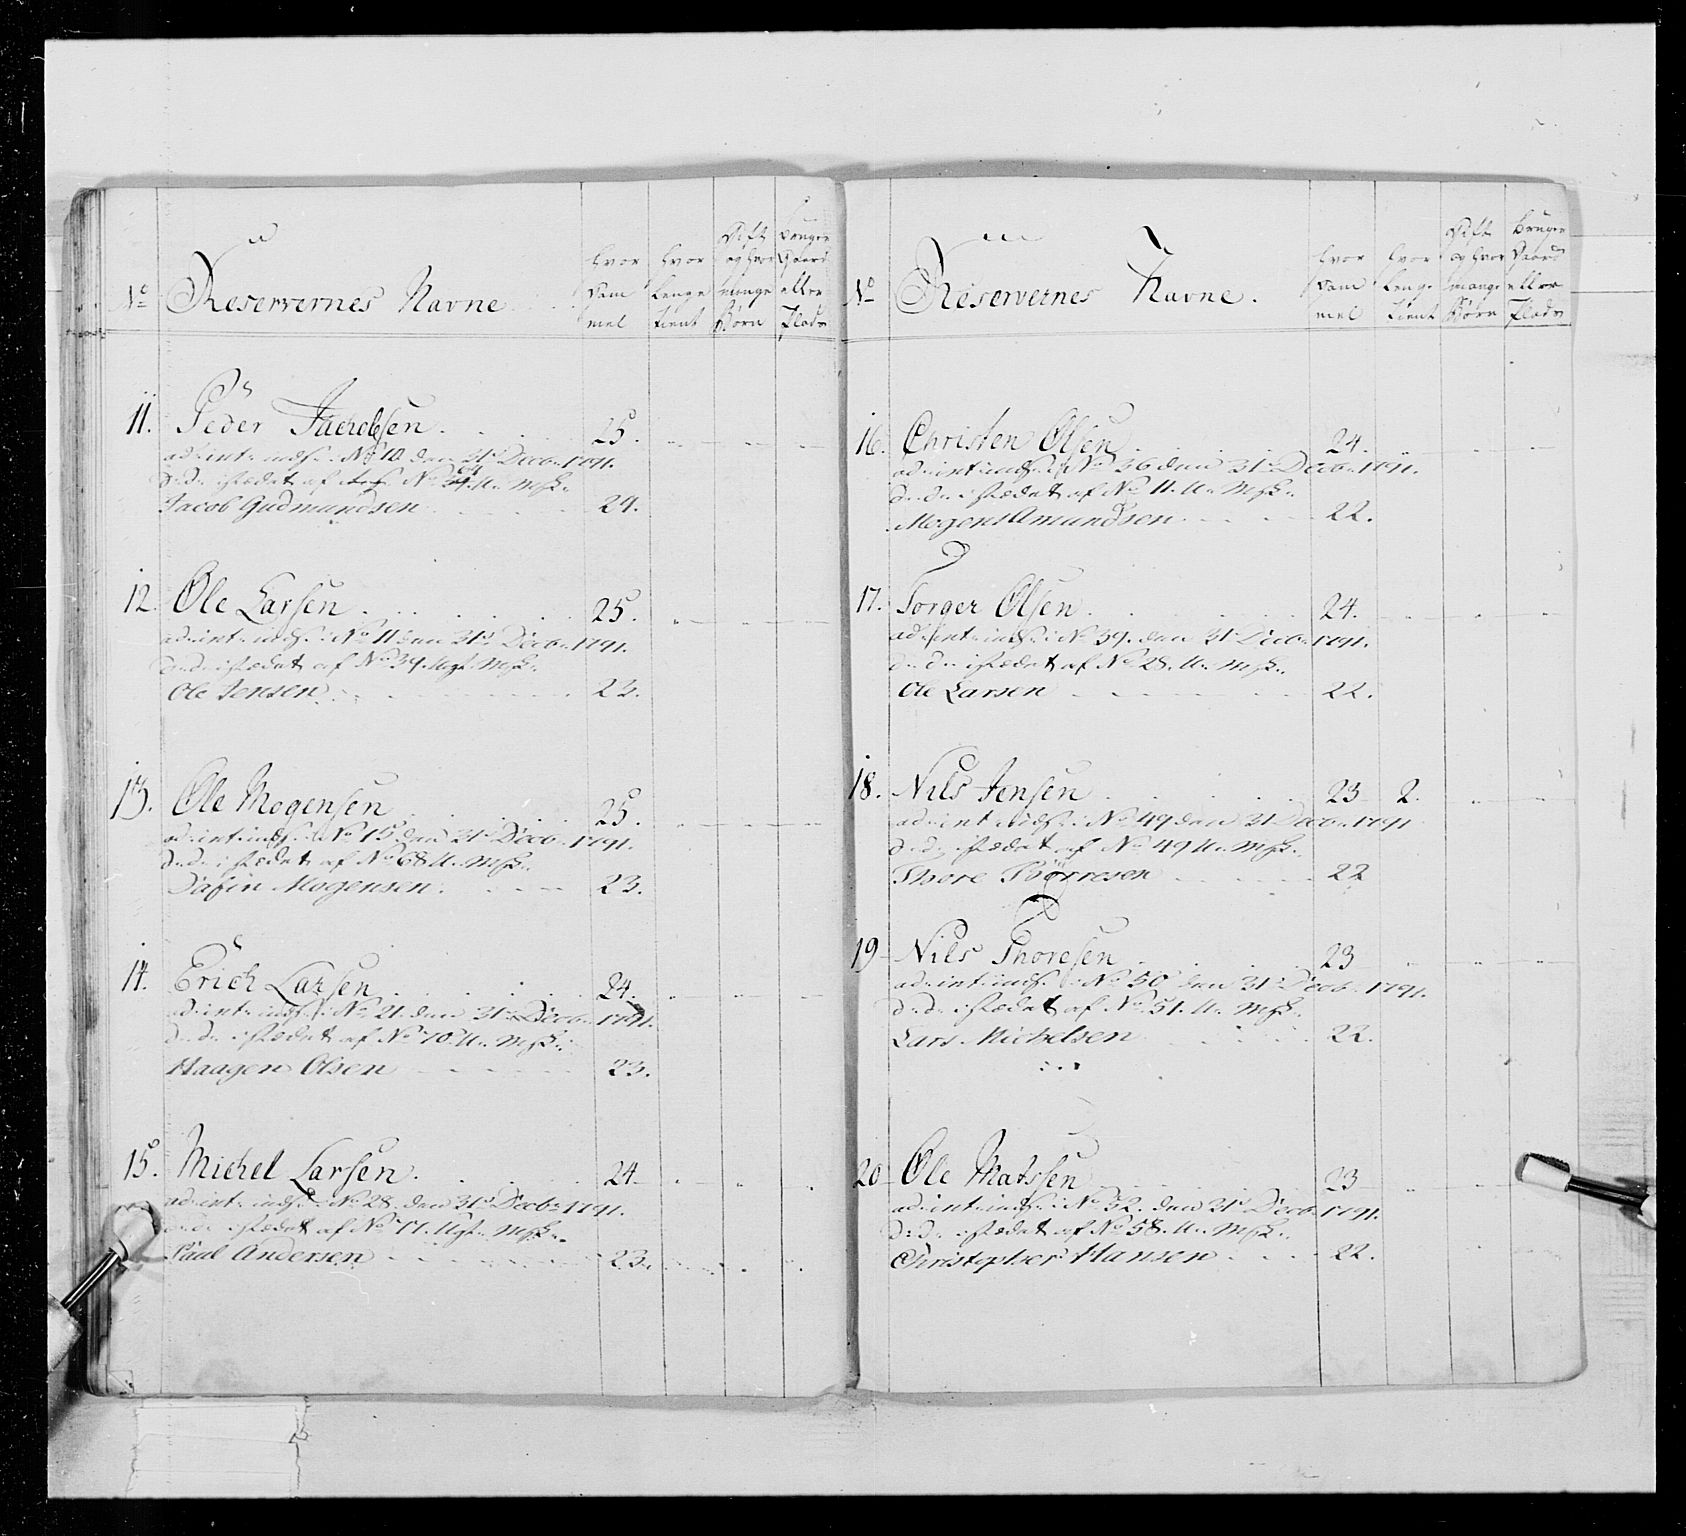 No
Reservernes Navne
hvor gam mel
hvor lenge tient
Gift og hvor mange Børn
bruger Gaard eller Plads
11. Peder Jachobsen. 25.
ad: int: inds: No 10 den 31 Decb: 1791.
d: d: istædet af No 34. U: Msk:
Jacob Gudmundsen 24.
12. Ole Larsen 25.
ad: int: inds: No 11 den 31 Decb: 1791.
d: d: istædet af No 39. Ugt: Msk:
Ole Jensen 23.
13. Ole Mogensen 25.
ad: int: inds: No 15 den 31 Decb: 1791.
d: d: istædet af No 68 U: Msk:
Dafin Mogensen. 23.
14. Erich Larsen 24.
ad: int: inds: No 21. den 31 Decb: 1791.
d: d: istædet af No 70. U: Msk:
Haagen Olsen 23.
15. Michel Larsen. 24.
ad: int: inds: No 28. den 31 Decb: 1791.
d: d: istædet af No 77. Ugt: Msk:
Paul Andersen 23.
No
Reservernes Navne.
hvor gam mel
hvor lenge tient
Gift og hvor mange Børn
bruger Gaard eller Plads
16. Christen Olsen 24.
ad: int: inds: No 36 den 31 Decb: 1791.
d: d: istædet af No 11. U: Msk:
Mogens Amundsen 22.
17. Torger Olsen 24.
ad: int: inds: No 39. den 31 Decb: 1791.
d: d: istædet af No 28. U: Msk:
Ole Larsen 22.
18. Nils Jensen 23 2.
ad: int: inds: No 49 den 31 Decb: 1791
d: d: istædet af No 49 U: Msk:
Thore Børresen 22
19 Nils Thoresen 23
ad: int: inds: No 50 den 31 Decb: 1791.
d: d: istædet af No 51. U: Msk:
Lars Michelsen 22.
20 Ole Matssen 23
ad: int: inds: No 52. den 31 Decb: 1791.
d: d: istædet af No 58. U: Msk:
Christopher Hansen 22.